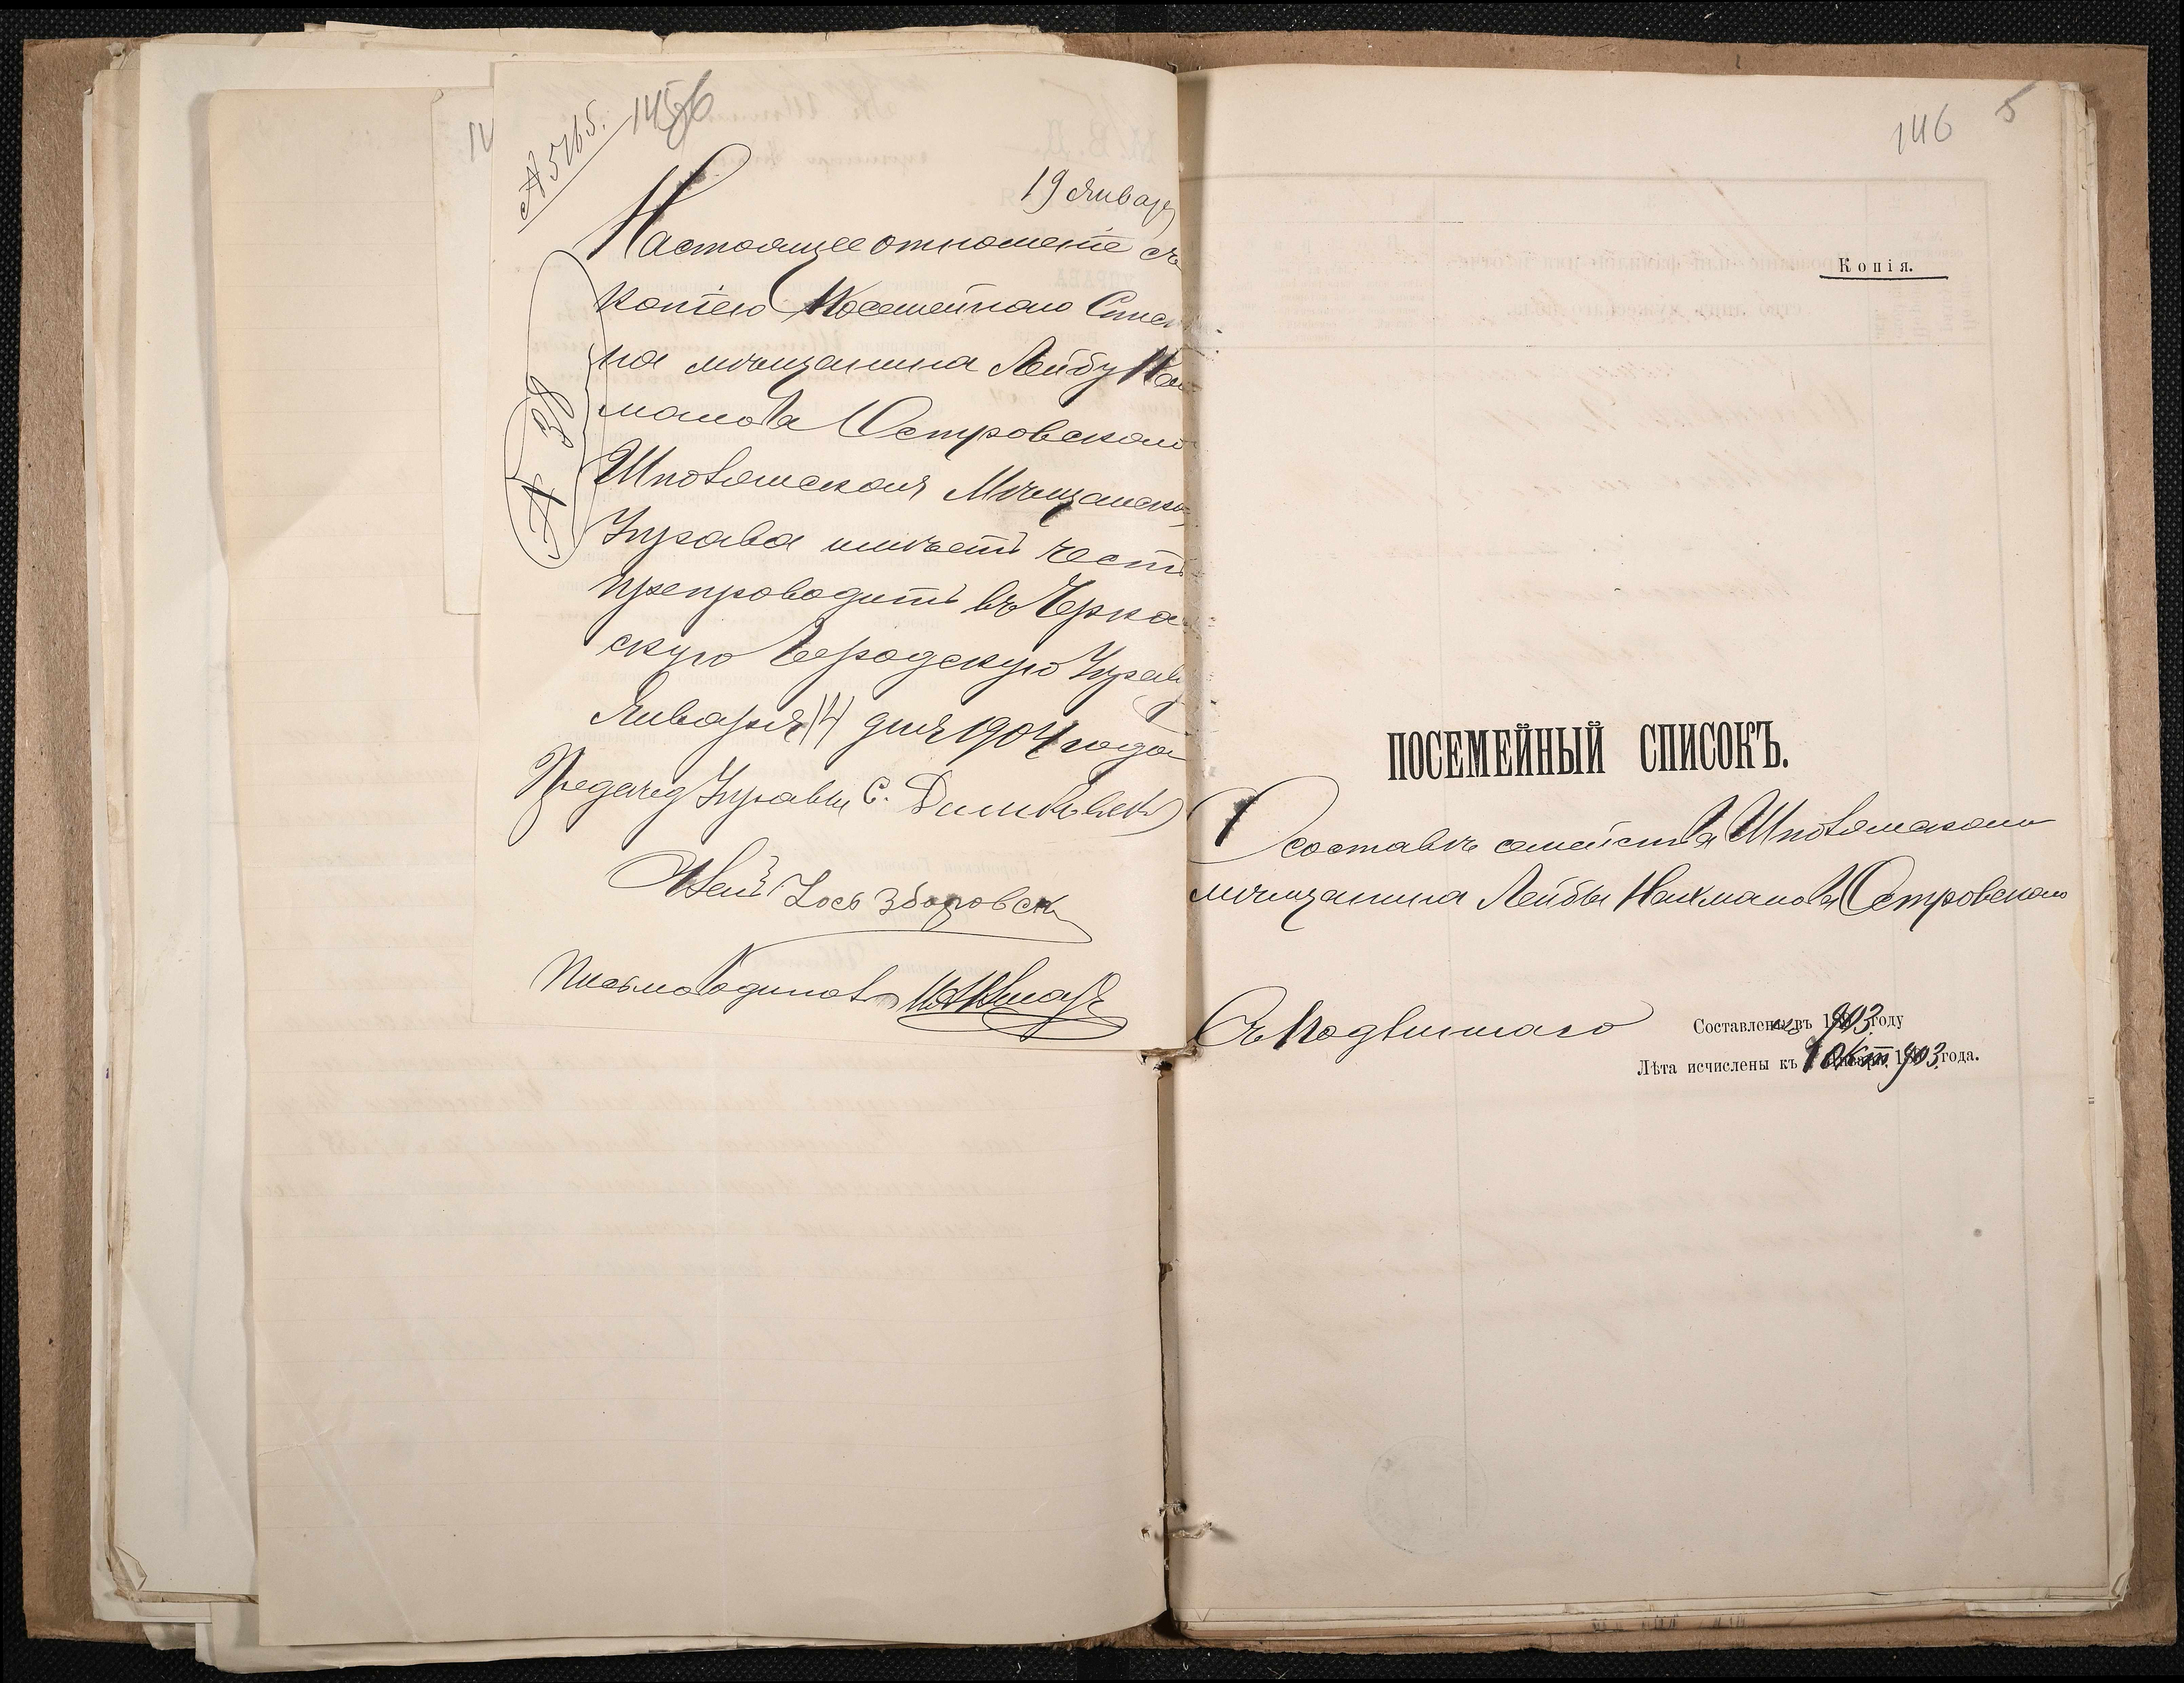 № 5165.
19 Января
Настоящее отношеніе съ
Копіею Посемейнаго Спис
на мѣщанина Лейбу Нах
манова Островскаго
Шполянская Мѣщанск
Управа имѣетъ честь
препроводить въ Черка
скую Городскую Управу
Января 14 дня 1904 года
Предсѣд Управы С.
Член Іось Зборовск
Письмоводитель
№ 38
146
5
Копія.
ПОСЕМЕЙНЫЙ СПИСОКЪ.
О составѣ семейства Шполянскаго
мѣщанина Лейбы Нахманова Островскаго
Съ Подлиннаго
Составленъ въ 1903 году
Лѣта исчислены къ 1 Окт. 1903 года.